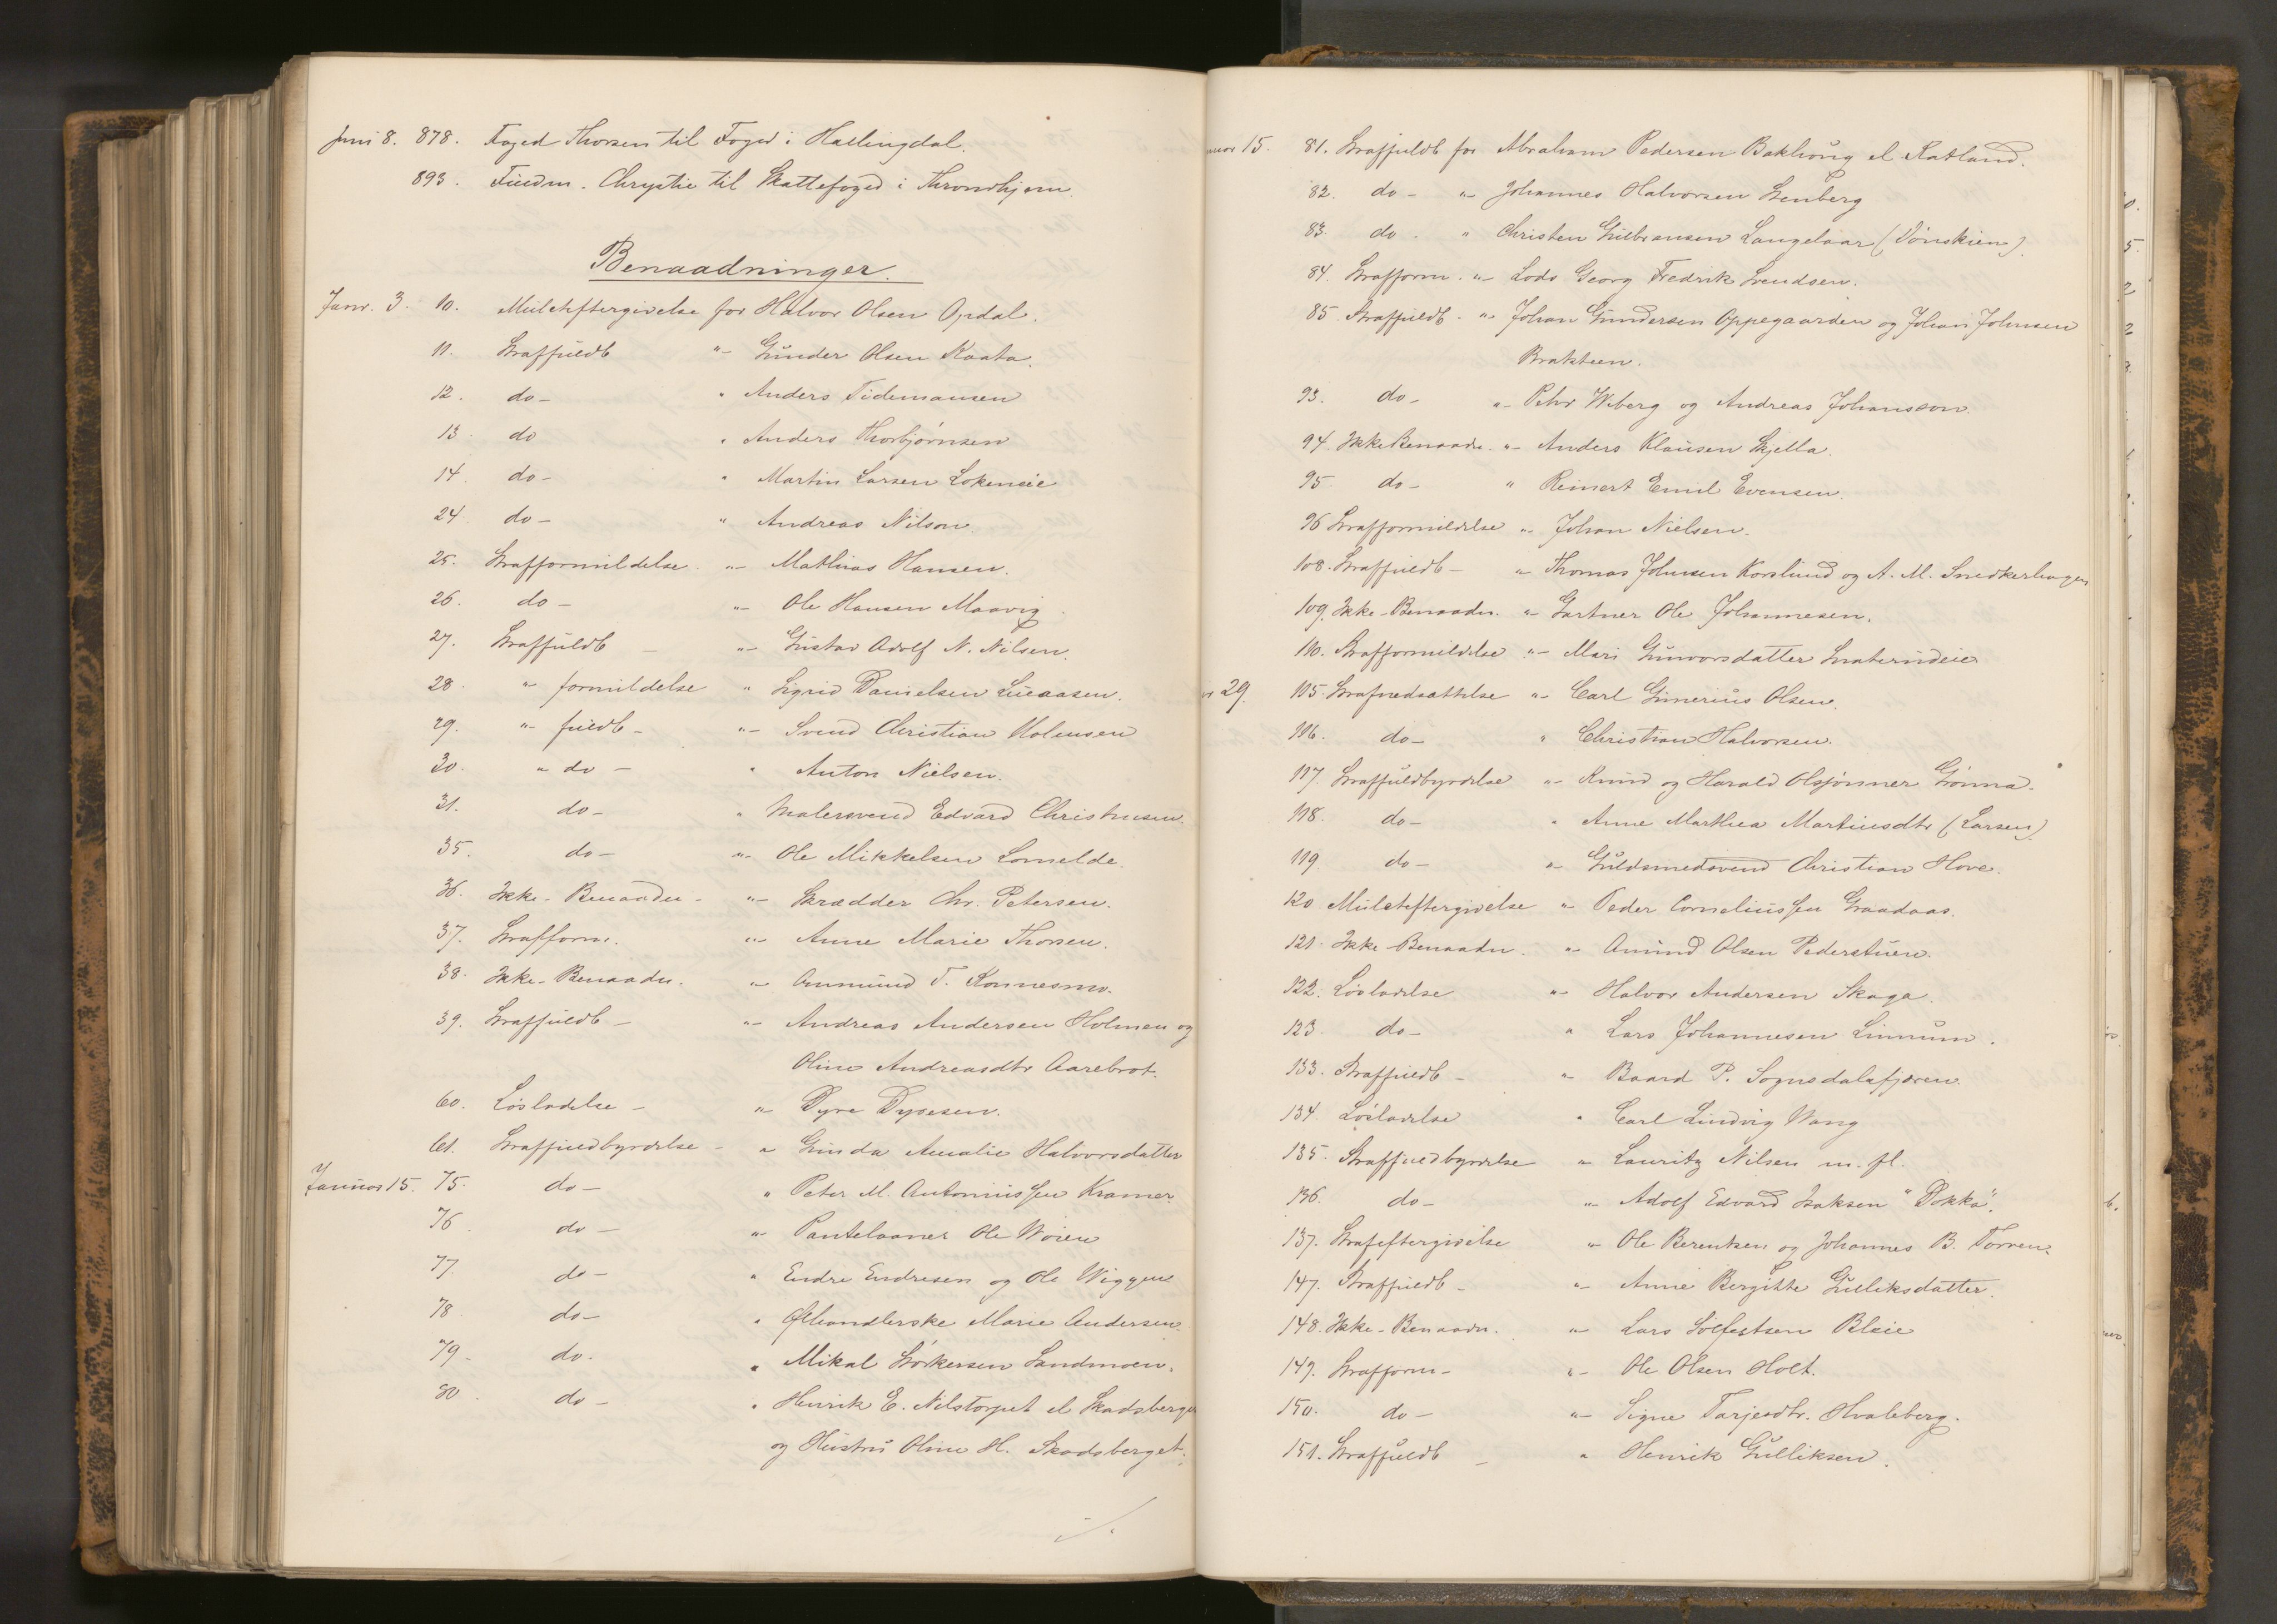 Juni 8. 878. Foged Thorsen til Foged i Hallingdal.
893. Fuldm. Chrystie til Skattefoged i Throndhjem.
Benaadninger.
Janr. 3. 10. Mulcteftergivelse for Halvor Olsen Opdal.
11. Straffuldb "- Gunder Olsen Kaata.
12. do- " Anders Tidemansen
13. do " Anders Thorbjørnsen
14. do- " Martin Larsen Lokeneie
24. do- " Andreas Nilson.
25. Strafformildelse. "- Mathias Hansen.
26. do- "- Ole Hansen Maavig.
27. Straffuldb - "- Gustav Adolf N. Nilsen.
28. " formildelse " Sigrid Danielsen Lueaasen.
29. "- fuldb- "- Svend Christian Holmsen
30. " do - " Anton Nielsen.
31. do- " Malersvend Edvard Christensen.
35. do- "- Ole Mikkelsen Lomelde.
36. Ikke-Benaadn- "- Skrædder Chr. Petersen.
37. Strafform. "- Anne Marie Thorsen.
38. Ikke-Benaadn. "- Ommund T. Konnesmo.
39. Straffuldb- "- Andreas Andersen Holmen og
Oline Andreasdtr Aarebrot.
60. Løsladelse - "- Dyre Dyresen.
61. Straffuldbyrdelse- " Gunda Amalie Halvorsdatter
Januar 15. 75. do- " Peter M. Antoniussen Kramer.
76. do- "- Pantelaaner Ole Woien
77. do- " Endre Endresen og Ole Wiggen
78. do- " Ølhandlerske Marie Andersen.
79. do. " Mikal Størkersen Sandmoen.
80. do- " Henrik E. Nilstorpet el Skadsberget
og Hustru Oline H. Skadsberget.
./.
nuar 15. 81. Straffuldb for Abraham Pedersen Bakhaug el Katland.
82. do- "- Johannes Halvorsen Stenberg
83. do. " Christen Gulbransen Langelaar (Vønskien)
84. Strafform. "- Lods Georg Fredrik Svendsen.
85. Straffuldb. "- Johan Gundersen Oppegaarden og Johan Johnsen
Brakstuen.
93. do- "- Pehr Wiberg og Andreas Johansson.
94. Ikke Benaadn. "- Anders Klausen Skjella.
95. do- " Reinert Emil Evensen.
96 Strafformildelse "- Johan Nielsen.
108. Straffuldb- "- Thomas Johnsen Korslund og A. M. Snedkerhagen
109. Ikke-Benaadn. "- Gartner Ole Johannesen.
110. Strafformildelse "- Mari Gunvorsdatter Snaterudeie
r 29. 115. Strafnedsættelse "- Carl Gunerius Olsen.
116. do- " Christian Halvorsen.
117. Straffuldbyrdelse "- Knud og Harald Olssønner Grønna.
118. do- " Anne Marthea Martinsdtr (Larsen)
119. do- "- Guldsmedsvend Christian Hove.
120 Mulcteftergivelse "- Peder Corneliussen Graadaas.
121. Ikke-Benaadn. "- Amund Olsen Pederstuen.
122. Løsladelse "- Halvor Andersen Skaga.
123. do- " Lars Johannesen Linnum.
133. Straffuldb- "- Baard P. Sognsdalsfjæren.
134. Løsladelse " Carl Ludvig Wang
135. Straffuldbyrdelse "- Lauritz Nilsen m. fl.
136. do- "- Adolf Edvard Isaksen "Dokka".
137. Strafeftergivelse "- Ole Berentsen og Johannes B. Torven.
147. Straffuldb- "- Anne Bergitte Gulliksdatter.
148. Ikke-Benaadn. "- Lars Solfestsen Bleie
149. Strafform- "- Ole Olsen Holt.
150. do- "- Signe Tarjeisdtr. Hvaleberg.
151. Straffuldb- " Henrik Gulliksen.